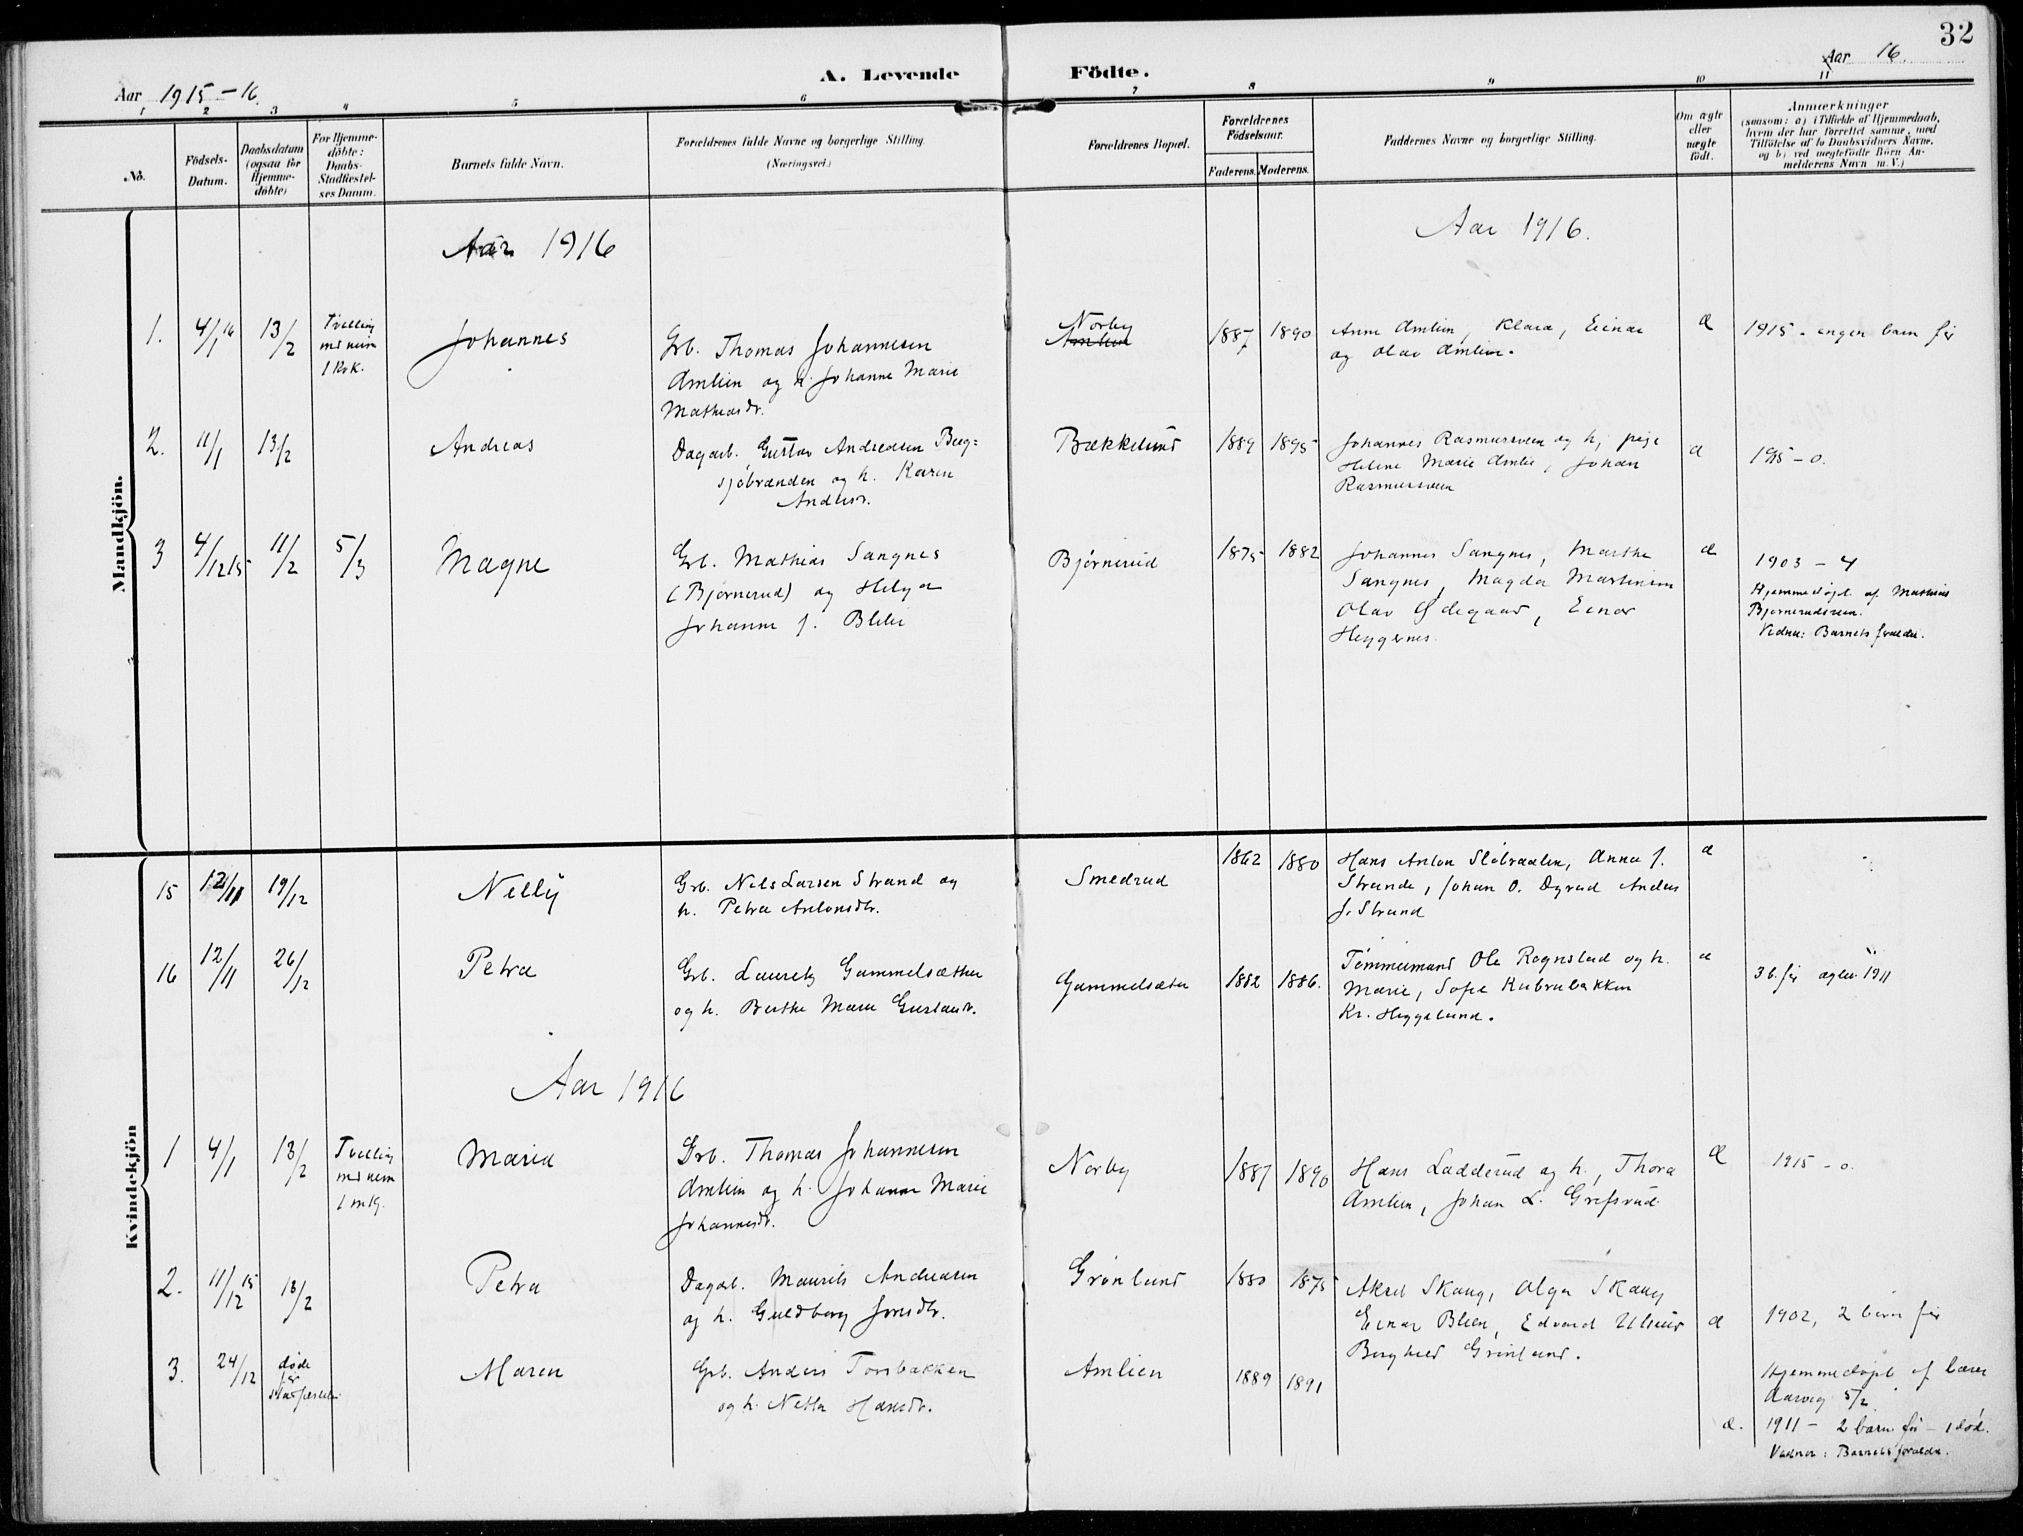 32
Aar 1915-16.
A. Levende Födte.
Aar 16.
1 2 3 4 5 6 7 8 9 10 11
No.
Födsels-Datum.
Daabsdatum (ogsaa for Hjemme-döbte)
For Hjemme-döbte: Daabs-Stadfæstel-ses Datum.
Barnets fulde Navn.
Forældrenes fulde Navne og borgerlige Stilling.
(Næringsvei.)
Forældrenes Bopæl.
Forældrenes Födselsaar.
Faderens. Moderens.
Faddernes Navne og borgerlige Stilling.
Om ægte eller uægte födt.
Anmærkninger
(saasom: a) i Tilfælde af Hjemmedaab,
hvem der har forrettet samme, med
Tilföielse af to Daabsvidners Navne,
og b) ved uægtefödte Börn An-
melderens Navn m. V.)
Mandkjön.
Aar 1916
Aar 1916.
1. 4/1 16 13/2 Tvilling med num 1 Kvk. Johannes
Grb. Thomas Johannesen
Amlien og h. Johanne Marie
Mathiasdr.
Norby
Amlien
1887 1890
Anne Amlien, Klara, Einar
og Olav Amlien.
æ
1915 - ingen barn før
2. 11/1 13/2 Andreas
Dagarb. Gustav Andreasen Berg=
sjøbranden og h. Karen
Andersdr.
Bækkelund
1889 1895
Johannes Rasmussveen og h, pige
Helene Marie Amlie, Johan
Rasmussveen
æ
1915 - 0.
3 4/12 15 11/2 5/3 Magne
Grb. Mathias Sangnes
(Bjørnerud) og Helga
Johanne J. Blilie
Bjørnerud
1875 1882
Johannes Sangnes, Marthe
Sangnes, Magda Martinsen
Olav Ødegaard, Einar
Heggernes.
æ
1903 - 4
Hjemmedøpt af Mathias
Bjørnerudsveen.
Vidner: Barnets forældre.
Kvindekjön
15 12/11 19/12 Nelly
Grb. Nils Larsen Strand og
h. Petra Antonsdtr.
Smedrud
1862 1880
Hans Anton Sløbraaten, Anna J.
Strande, Johan O. Dyrud Anders
J. Strand
æ
16 12/11 26/12 Petra
Grb. Lauritz Gammelsæther
og h. Berthe Marie Gustavdr.
Gammelsæter
1882 1886.
Tømmermand Ole Rognstad og h.
Marie, Sofie Kubrubakken
Kr. Heggelund.
æ
3 b. før ægtev. 1911
Aar 1916
1 4/1 13/2 Tvilling med num 1 mkj. Maria
Grb. Thomas Johannesen
Amlien og h. Johanne Marie
Johannesdr.
Norby
1887 1890
Hans Ladderud og h., Thora
Amlien, Johan L. Grefsrud
æ
1915 - 0.
2. 11/12 15 13/2 Petra
Dagarb. Maurits Andreasen
og h. Guldborg Jonsdtr.
Grønlund
1880 1875
Aksel Skaug, Olga Skaug
Einar Blien, Edvard Ulsrud
Borghild Grønlund.
æ
1902, 2 barn før
3. 24/12 døde før stadfæstelse Maren
Grb. Anders Torsbakken
og h. Netta Hansdr.
Amlien
1889 1891
æ.
Hjemmedøpt af lærer
Aarvig 5/2
1911 - 2 barn før - 1 død.
Vidner: Barnets forældre.